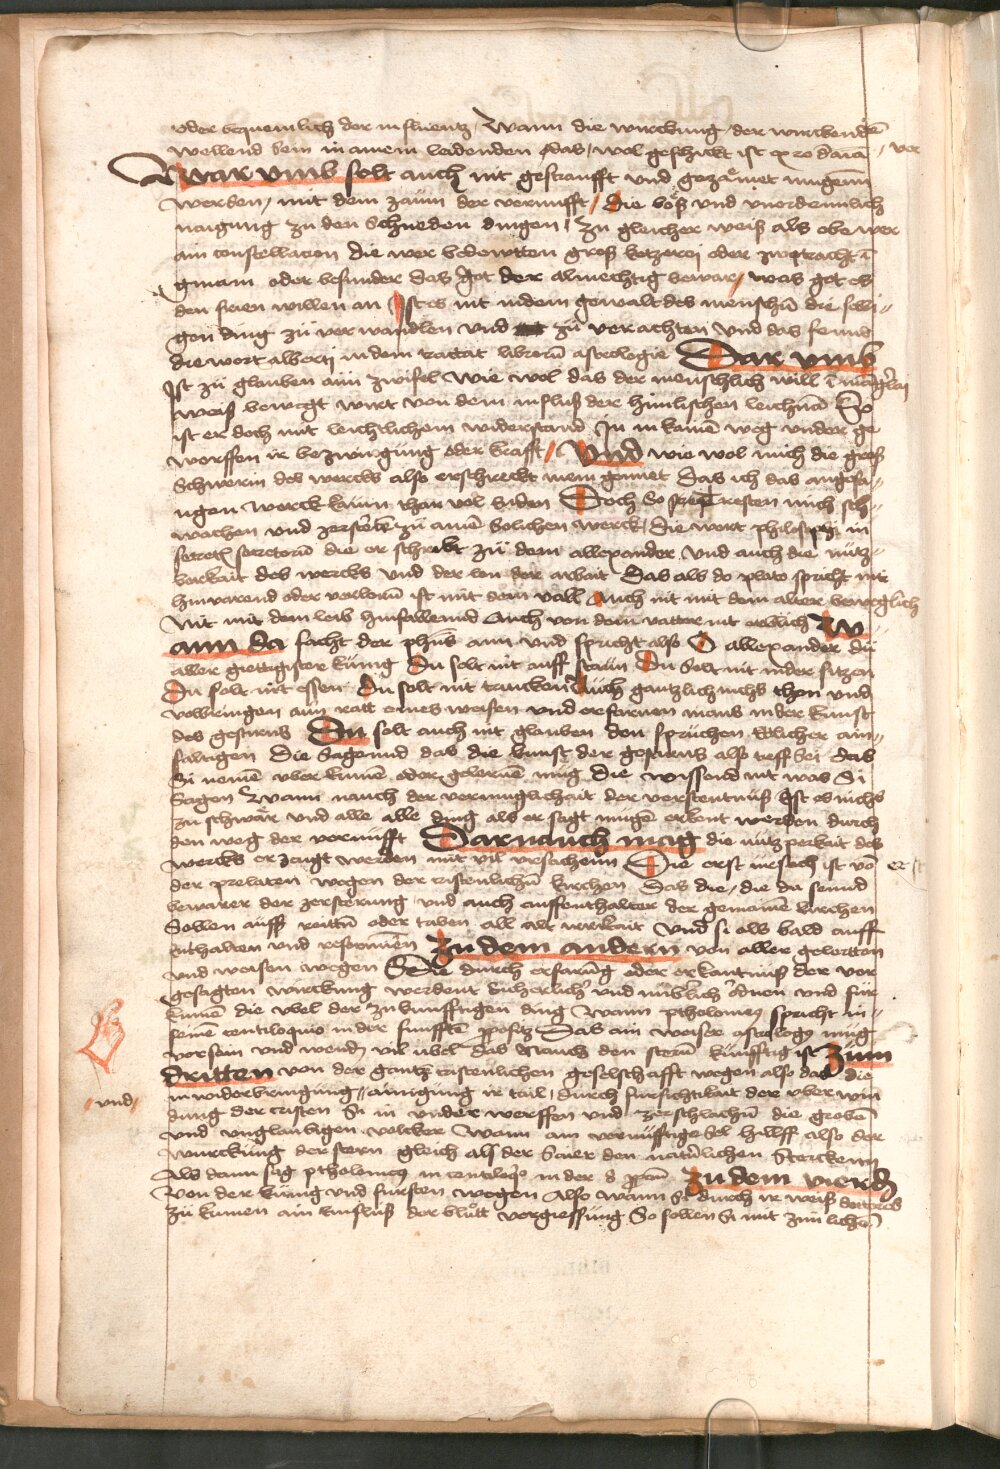 oder bequemlich der influentz / Wann die wurckung der wurckendē
wellend sein in ainem leidenden / das wol geschickt ist
War vmb solt auch nit gestraufft vnd gezämet mugenn
werden / mit dem zaum der vernufft / die böß vnd vnordennlich
naigung zu den schneden dingen / Zu gleicher weiß als ob wer
ain constellacion die wer bedewtten groß ketzerei oder zwitracht ī
gmain oder besunder das got der almechtig bewar / was get es
den frien willen an / Ist es nit in dem gewalt des menschn̄ die seli=
gen ding zu verwandlen vnd zu verachten vnd das seinnd
die wort alberti in dem tractat librorū astrologie Dar vmb
Ist zu glauben ann zwifel wie wol das der menschlich will ī mangerlai
weiß bewegt wirt von dem influß der himlischen leichnā So
ist er doch mit leichtlichem widerstand in in kainē weg vnder ge
worffen ir bezwingung oder krafft / Vnd wie wol mich die groß
schwerin des wercks also erschreckt mein gemiet das ich das angefā=
ngen werck kaum thar vol enden Doch so resten mich sch=
wachen vnd zersterck zu ainē solichen werck / die wort philosophi in
secretis secretorū die er schribt zu dem allexander vnd auch die nutz=
berkait des wercks vnd der lon der arbait Das als do plato spricht nit
hinvarend oder verlorn̄ ist mit dem vall Auch nit mit dem alter beweglich
Nit mit dem leib hinfallennd Auch von dem vatter nit erblich W
ann da facht der phūs ann vnd spricht also O allexander du
aller gietigister kunig Du solt nit auff staūn Du solt nit nider sitzen
Du solt nit essen Du solt nit trincken Auch gantzlich nichs thon vnd
volbringen ann ratt eines weisen vnd erfarnen mans in der kunst
des gestirns Du solt auch nit glauben den spruchen ettlicher ain=
faltigen Die sagennd das die kunst der gestirns also treff sei / das
si nemē vber kumē oder gelernē mug Die wissend nit was si
sagen Wann nauch der vermuglichait der verstentnuß Ist es nichs
zu schwär vnd alle alle ding als er sagt mugē erkent werden durch
den weg der vernufft Darnauch mag die nutzperkait des
wercks er zaigt werden mit vil vrsachenn Die erst ursach ist vō
der prelaten wegen der cristenlichn̄ kirchen Das die / die da seinnd
bewarer der zersterung vnd auch auffenthalter der gemainē kirchen
Sollen auff reittn̄ oder taben all alt wirkait Vnd si als bald auff
enthalten vnd reformiern Zu dem andern von aller gelertten
vnd weisen wegen Die durch erfarūg oder erkantnuß der vor
gesagten wurckung werdent sicherlich vnd nutzlich ordnen vnd fur
kumē die vbel der zukunfftigen ding Wann ptholomeus spricht in=
seinē centiloquio in der funfftē Das ain weiser astrologus mug
versain vnd wendn̄ vil ubel das nauch den stern̄ kunfftig ist Zum
dritten von der gantz cristenlichen geselschafft wegen also das die
in widerbringung / ainigung ir tail / durch fursichtikait der vber win
=vnd=
dung der cristen si in vnder werffen vnd zerschlachn̄ die groben
vnd vnglaubigen volcker Wann ain vernufftige sel hillff also der
wurckung der stern gleich als der Saier den naturlichen Sterckenn
Als dann sag ptholomeus in centilogo in der 8 Zu dem vierdn̄
Von der kunig vnd fursten wegen Also wann si durch ir weiß
zu kumen ain einfluß der blutt vergiessung So sollen si mit zimlichē